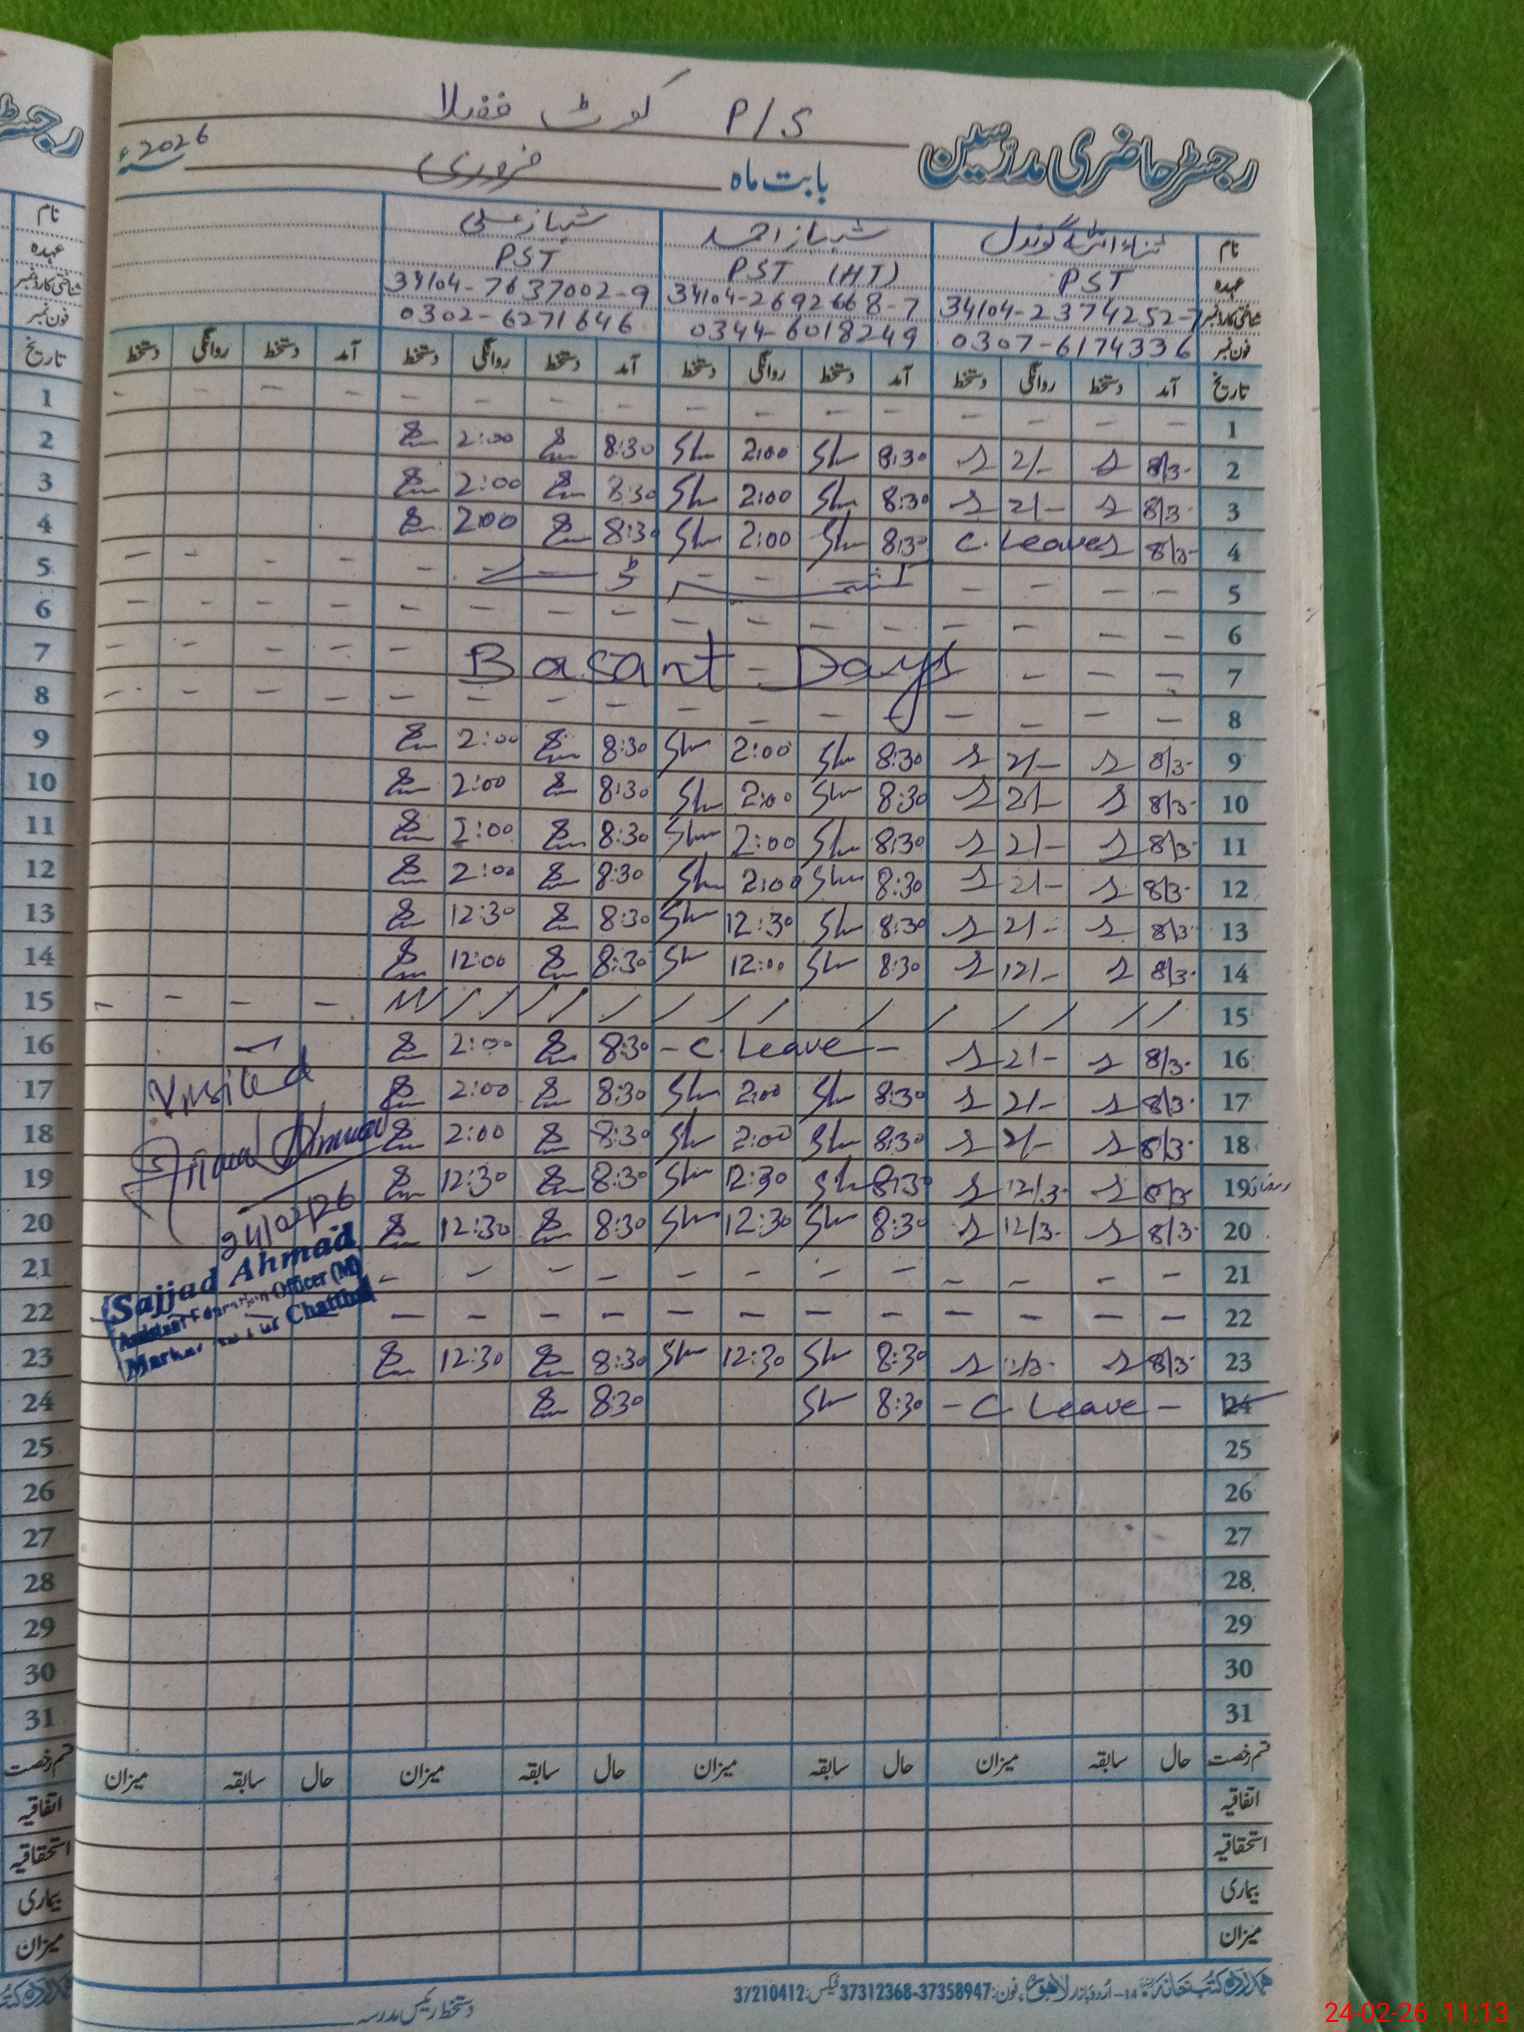 رجسٹر حاضری مدرسین
P/S کوٹ
بابت ماہ فروری سنہ 2026ء
نام ثناء اللہ گوندل شہباز احمد شہباز علی
عہدہ PST PST (HT) PST
شناختی کارڈ نمبر 34104-2374252-7 34104-2692668-7 34104-7637002-9
فون نمبر 0307-6174336 0344-6018249 0302-6271646
تاریخ آمد دستخط روانگی دستخط آمد دستخط روانگی دستخط آمد دستخط روانگی دستخط آمد دستخط روانگی دستخط
1 - - - - - - - - - - - - - - - -
2 8/3- 2/- 8:30 2:00 8:30 2:00
3 8/3- 2/- 8:30 2:00 8:30 2:00
4 8/3- C. Leave 8:30 2:00 8:30 2:00
5 - - - - - - - - - - - -
6 - - - - - - - - - - - - - - - -
7 - - - Basant Days - - - - -
8 - - - - - - - - - - - - - - - -
9 8/3- 2/- 8:30 2:00 8:30 2:00
10 8/3- 2/- 8:30 2:00 8:30 2:00
11 8/3- 2/- 8:30 2:00 8:30 2:00
12 8/3- 2/- 8:30 2:00 8:30 2:00
13 8/3- 2/- 8:30 12:30 8:30 12:30
14 8/3- 12/- 8:30 12:00 8:30 12:00
15 / / / / / / / / / / / / - - - -
16 8/3- 2/- - C. Leave - 8:30 2:00
17 8/3- 2/- 8:30 2:00 8:30 2:00
18 8/3- 2/- 8:30 2:00 8:30 2:00
19 8/3- 12/3- 8:30 12:30 8:30 12:30
20 8/3- 12/3- 8:30 12:30 8:30 12:30
21 - - - - - - - - - - - -
22 - - - - - - - - - - - -
23 8/3- 8:30 12:30 8:30 12:30
24 - C. Leave - 8:30 8:30
25
26
27
28
29
30
31
Visited
24/02/26
Sajjad Ahmad
Assistant Education Officer (M)
Markaz Chattha
قسم رخصت حال سابقہ میزان حال سابقہ میزان حال سابقہ میزان حال سابقہ میزان
اتفاقیہ
استحقاقیہ
بیماری
میزان
ہمدرد کتب خانہ 14-اُردو بازار لاہور، فون: 37358947-37312368 فیکس: 37210412
دستخط رئیس مدرسہ
رجسٹر
نام
عہدہ
شناختی کارڈ نمبر
فون نمبر
تاریخ
1
2
3
4
5
6
7
8
9
10
11
12
13
14
15
16
17
18
19
20
21
22
23
24
25
26
27
28
29
30
31
قسم رخصت
اتفاقیہ
استحقاقیہ
بیماری
میزان
24-02-26 11:13